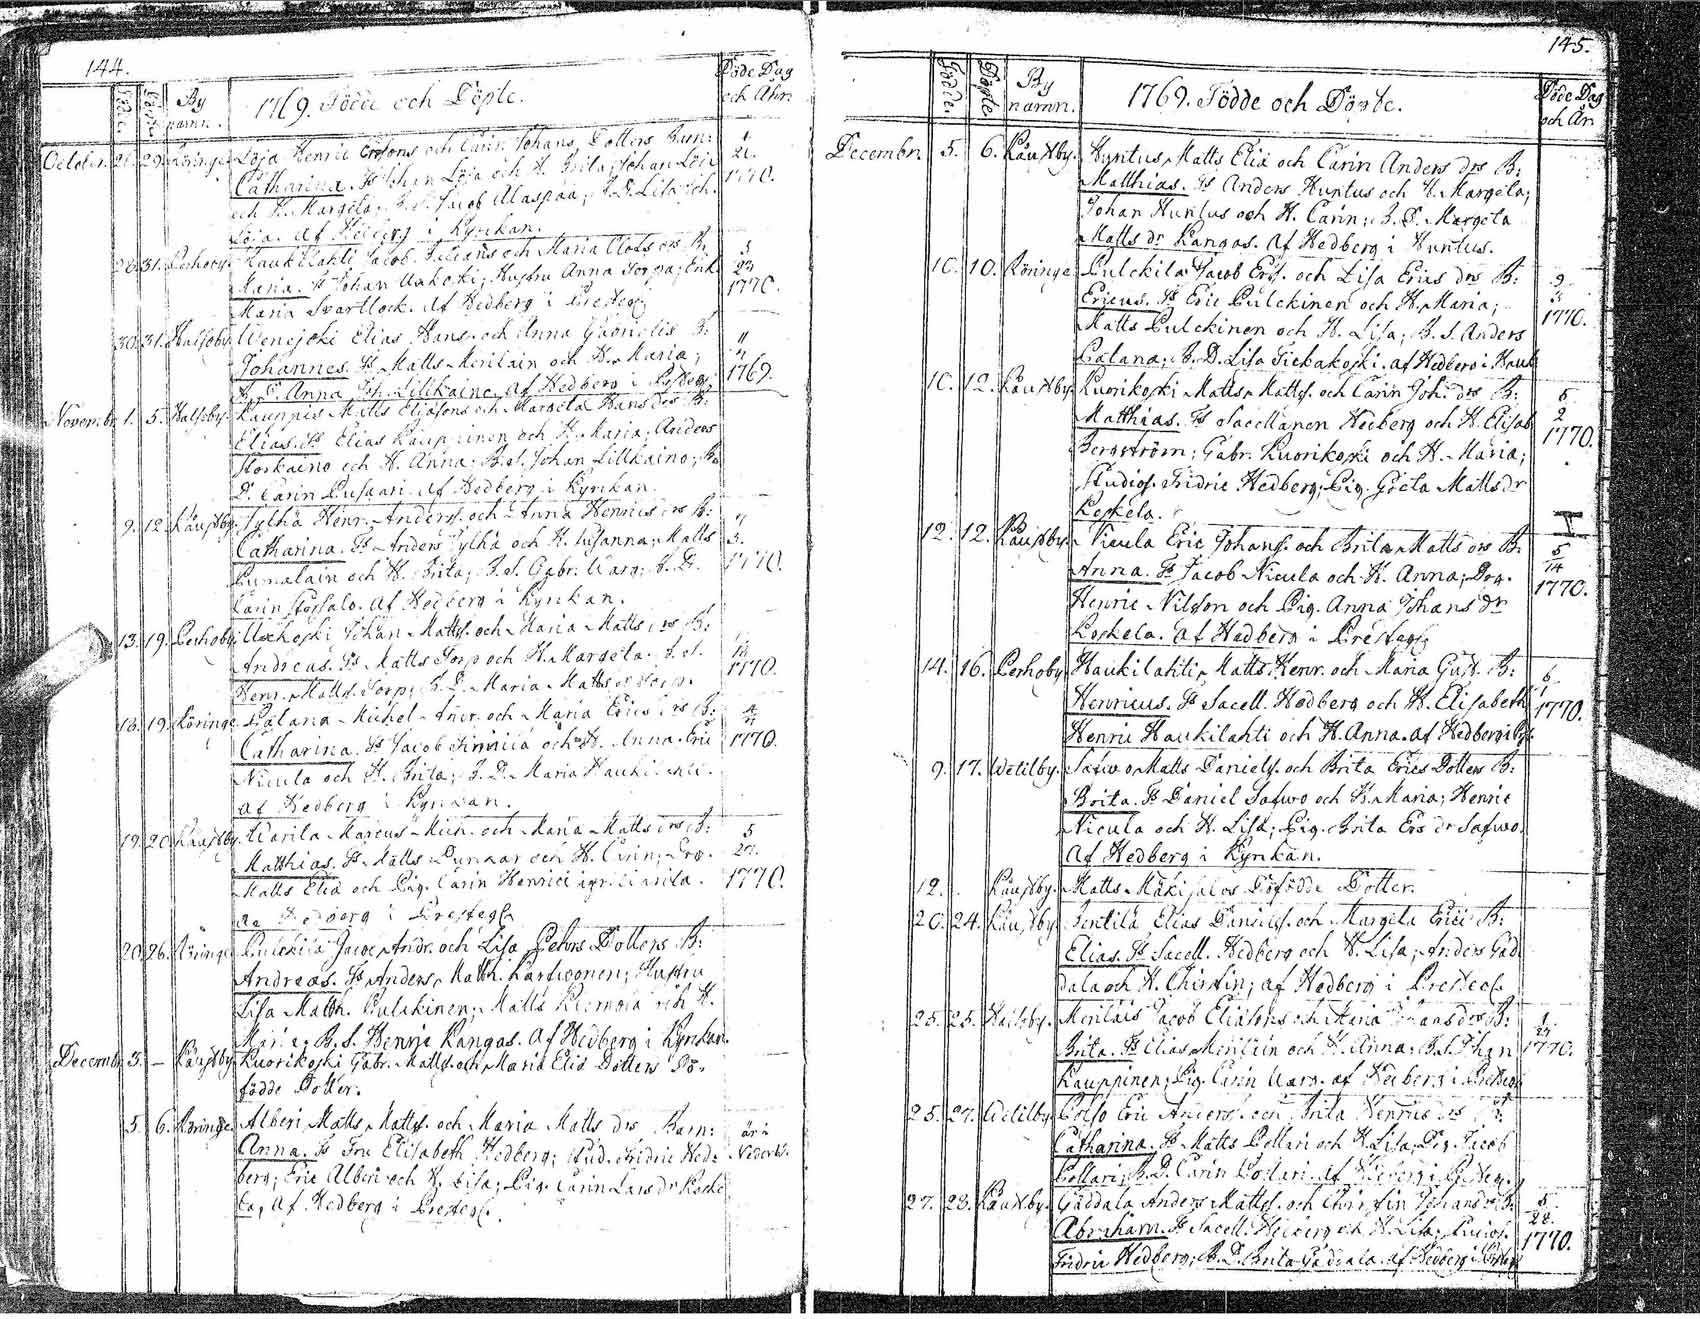 144.
Födde Döpte By namn. 1769. Födde och Döpte. Döde Dag och Åhr.
October. 21. 29. Röringe. Löja Henric Ersons och Carin Johans Dotters Barn: 1
Catharina. Fs Johan Löja och H. Brita; Johan Löja 21. 1770.
och H. Margeta; B. S. Jacob Alaspää; B. D. Lisa
Löja. af Hedberg i Kyrkan.
26. 31. Perhoby. Haukilahti Jacob och Maria Olofs drs B. 5
Maria. Fs Johan Uskoski; Hustru Anna Torpa; Erik 23 1770.
Maria Svartlock. af Hedberg i Presteg
30. 31. Halsoby. Elias Hans. och Anna Gabrielis B:
Johannes. Fs Matts Merilain och H. Maria;
B. D. Anna Joh. Lillkaino. af Hedberg i Presteg. 1769.
Novembr. 1. 5. Halsoby. Kauppis Matts Eliæsons och Margeta Hans drs B:
Elias. Fs Elias Kauppinen och H. Maria; Anders
Storkaino och H. Anna; B. S. Johan Lillkaino; B.
D. Carin Pusaari. af Hedberg i Kyrkan.
9. 12. Käustby. Jylhä Henr. Anders. och Anna Henrics drs B:
Catharina. Fs Anders Jylhä och H. Susanna; Matts 3.
Pumalain och H. Brita; B. S. Gabr. Warg; B. D. 1770.
Carin Storsalo. af Hedberg i Kyrkan.
13. 19. Perhoby. Uskoski Johan Matts. och Maria Matts drs B:
Andreas. Fs Matts Torp och H. Margeta. B. S. 1770.
Henr. Matts. Torp; B. D. Maria Matts dr Torp.
18. 19. Röringe. Palana Michel Andr. och Maria Erics drs B: 4
Catharina. Fs Jacob Finnilä och H. Anna. Eric 1770.
Nicula och H. Brita; B. D. Maria Haukilahti.
af Hedberg i Kyrkan.
19. 20. Käustby. Warila Marcus Mich. och Maria Matts drs B: 5
Matthias. Fs Matts Dunkar och H. Carin; Drg. 27.
Matts Eliæ och Pig. Carin Henrici 1770.
af Hedberg i Presteg
20. 26. Röringe. Pulckila Jacob Andr. och Lisa Pehrs Dotters B:
Andreas. Fs Anders Matth. Hustru
Lisa Matth. Pulckinen; Matts Riemola och H.
Maria; B. S. Henric Kangas. af Hedberg i Kyrkan.
Decembr. 3. – Käustby. Kuorikoski Gabr. Matts. och Maria Eliæ Dotters Dö-
födde Dotter.
5. 6. Röringe. Alberi Matts Matts. och Maria Matts drs Barn: är i
Anna. Fs Fru Elisabeth Hedberg; Stud. Fridric Hed- Vederl.
berg; Eric Alberi och H. Lisa; Pig. Carin Lars dr Koske
la, af Hedberg i Presteg.
145.
Födde Döpte By namn. 1769. Födde och Döpte. Döde Dag och År
Decembr. 5. 6. Käustby. Huntus Matts Eliæ och Carin Anders drs B:
Matthias. Fs Anders Huntus och H. Margeta;
Johan Huntus och H. Carin; B. D. Margeta
Matts dr Kangas. af Hedberg i Huntus.
10. 10. Röringe. Pulckila Jacob Ers. och Lisa Erics drs B: 9
Ericus. Fs Eric Pulckinen och H. Maria; 3
Matts Pulckinen och H. Lisa; B. S. Anders 1770.
Palana; B. D. Lisa Tiekakoski. af Hedberg i Hauk
10. 12. Käustby. Kuorikoski Matts Matts. och Carin Joh. drs B: 6
Matthias. Fs Sacellanen Hedberg och H. Elisab 2
Bergström; Gabr. Kuorikoski och H. Maria; 1770.
Studios. Fridric Hedberg; Pig. Greta Matts dr
Koskela.
12. 12. Käustby. Nicula Eric Johans. och Brita Matts drs B: 5
Anna. Fs Jacob Nicula och H. Anna; Drg. 14
Henric Nilsson och Pig. Anna Johans dr 1770.
Koskela. af Hedberg i Presteg
14. 16. Perhoby. Haukilahti Matts Henr. och Maria Gust. B: 6
Henricus. Fs Sacell. Hedberg och H. Elisabeth 1
Henric Haukilahti och H. Anna. af Hedberg i 1770.
9. 17. Wetilby. Safwo Matts Daniels. och Brita Erics Dotters B:
Brita. Fs Daniel Safwo och H. Maria; Henric
Nicula och H. Lisa; Pig. Brita Ers dr Safwo.
af Hedberg i Kyrkan.
12. Käustby. Matts Mäkisalos Döfödde Dotter.
20. 24. Käustby. Penttilä Elias Daniels. och Margeta Erici B:
Elias. Fs Sacell. Hedberg och H. Lisa; Anders Gäd
dala och H. Christin; af Hedberg i Presteg.
25. 25. Halsoby. Meriläis Jacob Eliæsons och Maria Johans drs B: 1
Brita. Fs Elias Meriläin och H. Anna; B. S. Johan 27
Kauppinen; Pig. Carin Warg. af Hedberg i Presteg 1770.
25. 27. Wetilby. Pollso Eric Anders. och Brita Henrics drs B:
Catharina. Fs Matts Pollari och H. Lisa; Dg. Jacob
Pollari; B. D. Carin Pollari. af Hedberg i Presteg.
27. 28. Käustby. Gäddala Anders Matts. och Christin Johans dr B: 5
Abraham. Fs Sacell. Hedberg och H. Lisa; Studios. 28.
Fridric Hedberg; B. D. Brita Gäddala. af Hedberg i 1770.